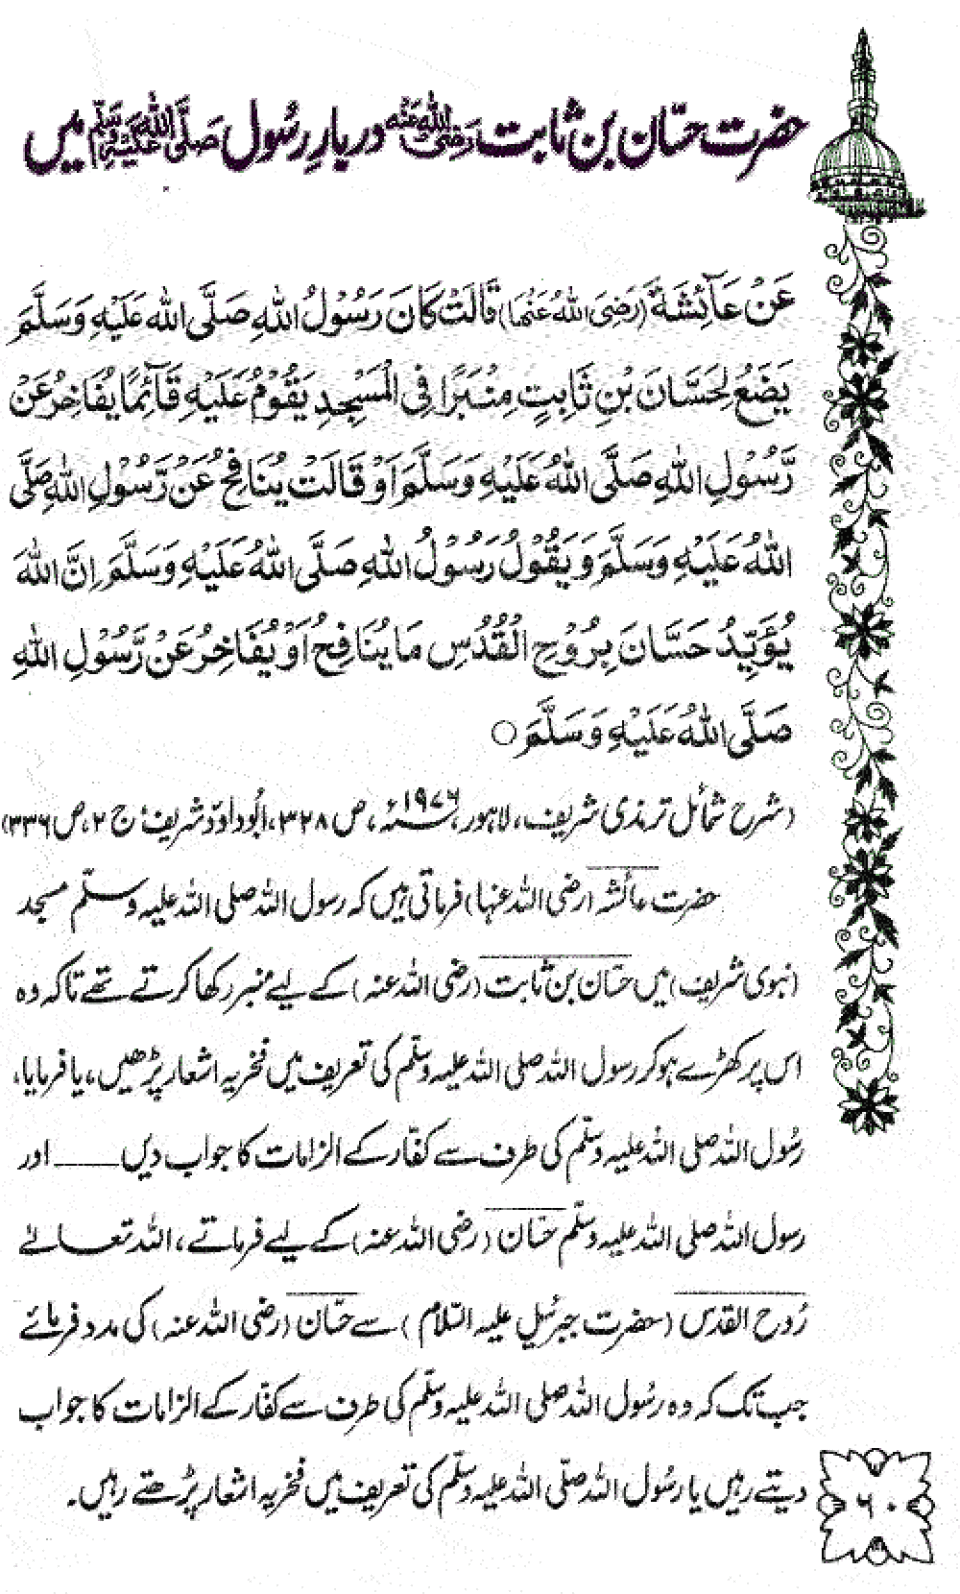 حضرت حسّان بن ثابت رضی اللہ عنہ دربارِ رسُول صَلَّی اللہُ عَلَیْہِ وَسَلَّم میں
عَنْ عَآئِشَۃَ (رَضِیَ اللہُ عَنْہَا) قَالَتْ کَانَ رَسُوْلُ اللہِ صَلَّی اللہُ عَلَیْہِ وَسَلَّمَ
یَضَعُ لِحَسَّانَ بْنِ ثَابِتٍ مِنْبَرًا فِی الْمَسْجِدِ یَقُوْمُ عَلَیْہِ قَآئِمًا یُفَاخِرُ عَنْ
رَّسُوْلِ اللہِ صَلَّی اللہُ عَلَیْہِ وَسَلَّمَ اَوْ قَالَتْ یُنَافِحُ عَنْ رَّسُوْلِ اللہِ صَلَّی
اللہُ عَلَیْہِ وَسَلَّمَ وَیَقُوْلُ رَسُوْلُ اللہِ صَلَّی اللہُ عَلَیْہِ وَسَلَّمَ اِنَّ اللہَ
یُؤَیِّدُ حَسَّانَ بِرُوْحِ الْقُدُسِ مَا یُنَافِحُ اَوْ یُفَاخِرُ عَنْ رَّسُوْلِ اللہِ
صَلَّی اللہُ عَلَیْہِ وَسَلَّمَ ○
(شرح شمائل ترمذی شریف، لاہور، ۱۹۷۶ء، ص ۳۲۸، ابُوداوٗد شریف، ج ۲، ص ۳۳۶)
حضرت عائشہ (رضی اللہ عنہا) فرماتی ہیں کہ رسول اللہ صلی اللہ علیہ وسلّم مسجد
(نبوی شریف) میں حسّان بن ثابت (رضی اللہ عنہ) کے لیے منبر رکھا کرتے تھے تاکہ وہ
اس پر کھڑے ہو کر رسول اللہ صلی اللہ علیہ وسلّم کی تعریف میں فخریہ اشعار پڑھیں، یا فرمایا،
رسُول اللہ صلی اللہ علیہ وسلّم کی طرف سے کفّار کے الزامات کا جواب دیں ــــــ اور
رسول اللہ صلی اللہ علیہ وسلّم حسّان (رضی اللہ عنہ) کے لیے فرماتے، اللہ تعالےٰ
رُوح القدس (حضرت جبرئیل علیہ السّلام) سے حسّان (رضی اللہ عنہ) کی مدد فرمائے
جب تک کہ وہ رسُول اللہ صلی اللہ علیہ وسلّم کی طرف سے کفّار کے الزامات کا جواب
دیتے رہیں یا رسُول اللہ صلّی اللہ علیہ وسلّم کی تعریف میں فخریہ اشعار پڑھتے رہیں۔
۶۰